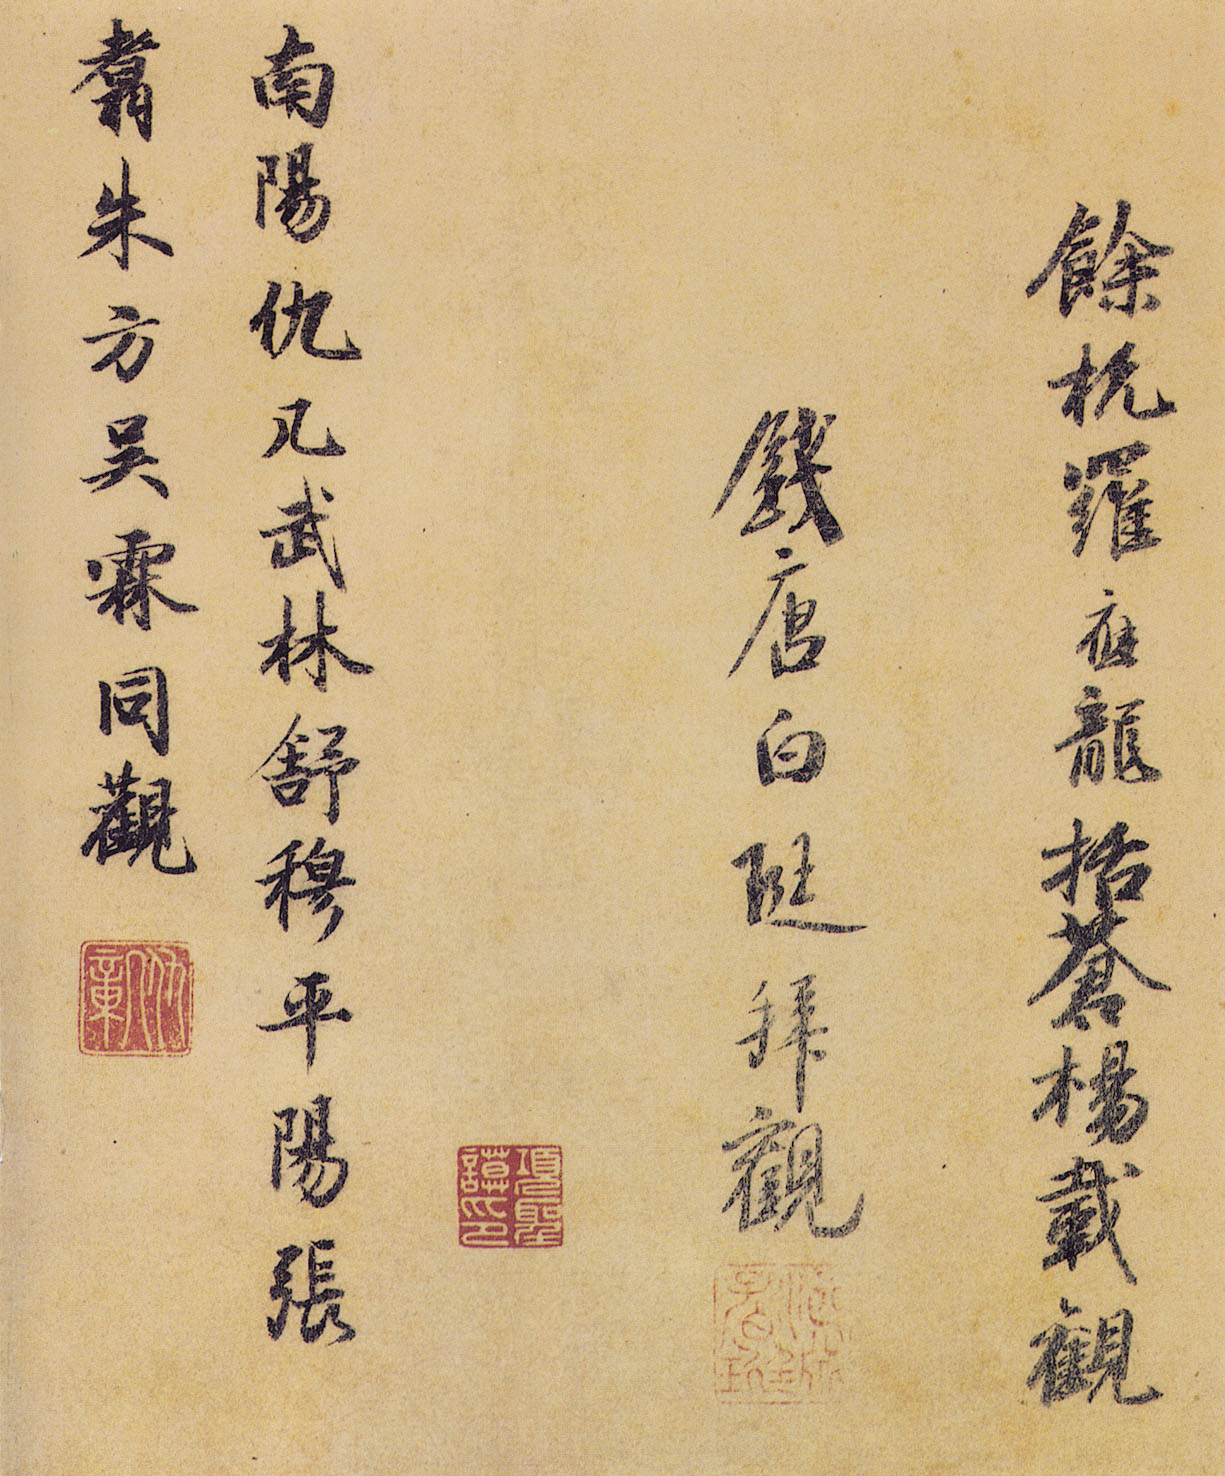 餘杭羅應龍括蒼楊載觀
錢唐白珽拜觀
項聖謨印
南陽仇几武林舒穆平陽張
翥朱方吳霖同觀